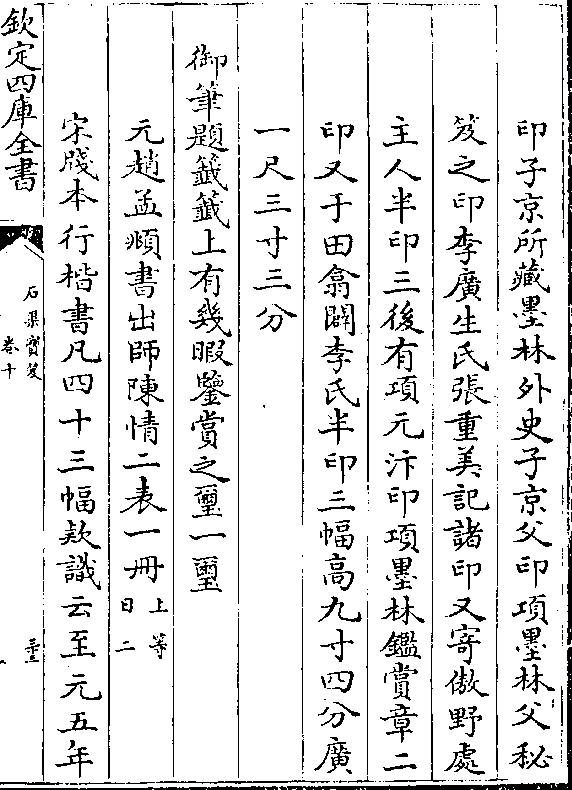 印子京所藏墨林外史子京父印項墨林父秘
笈之印李廣生氏張重美記諸印又寄傲野處
主人半印三後有項元汴印項墨林鑑賞章二
印又于田翕闢李氏半印三幅高九寸四分廣
一尺三寸三分
御筆題籖籖上有幾暇鑒賞之璽一璽
元趙孟頫書出師陳情二表一冊上等
日二
宋牋本行楷書凡四十三幅欵識云至元五年
欽定四庫全書
石渠寶笈
卷十